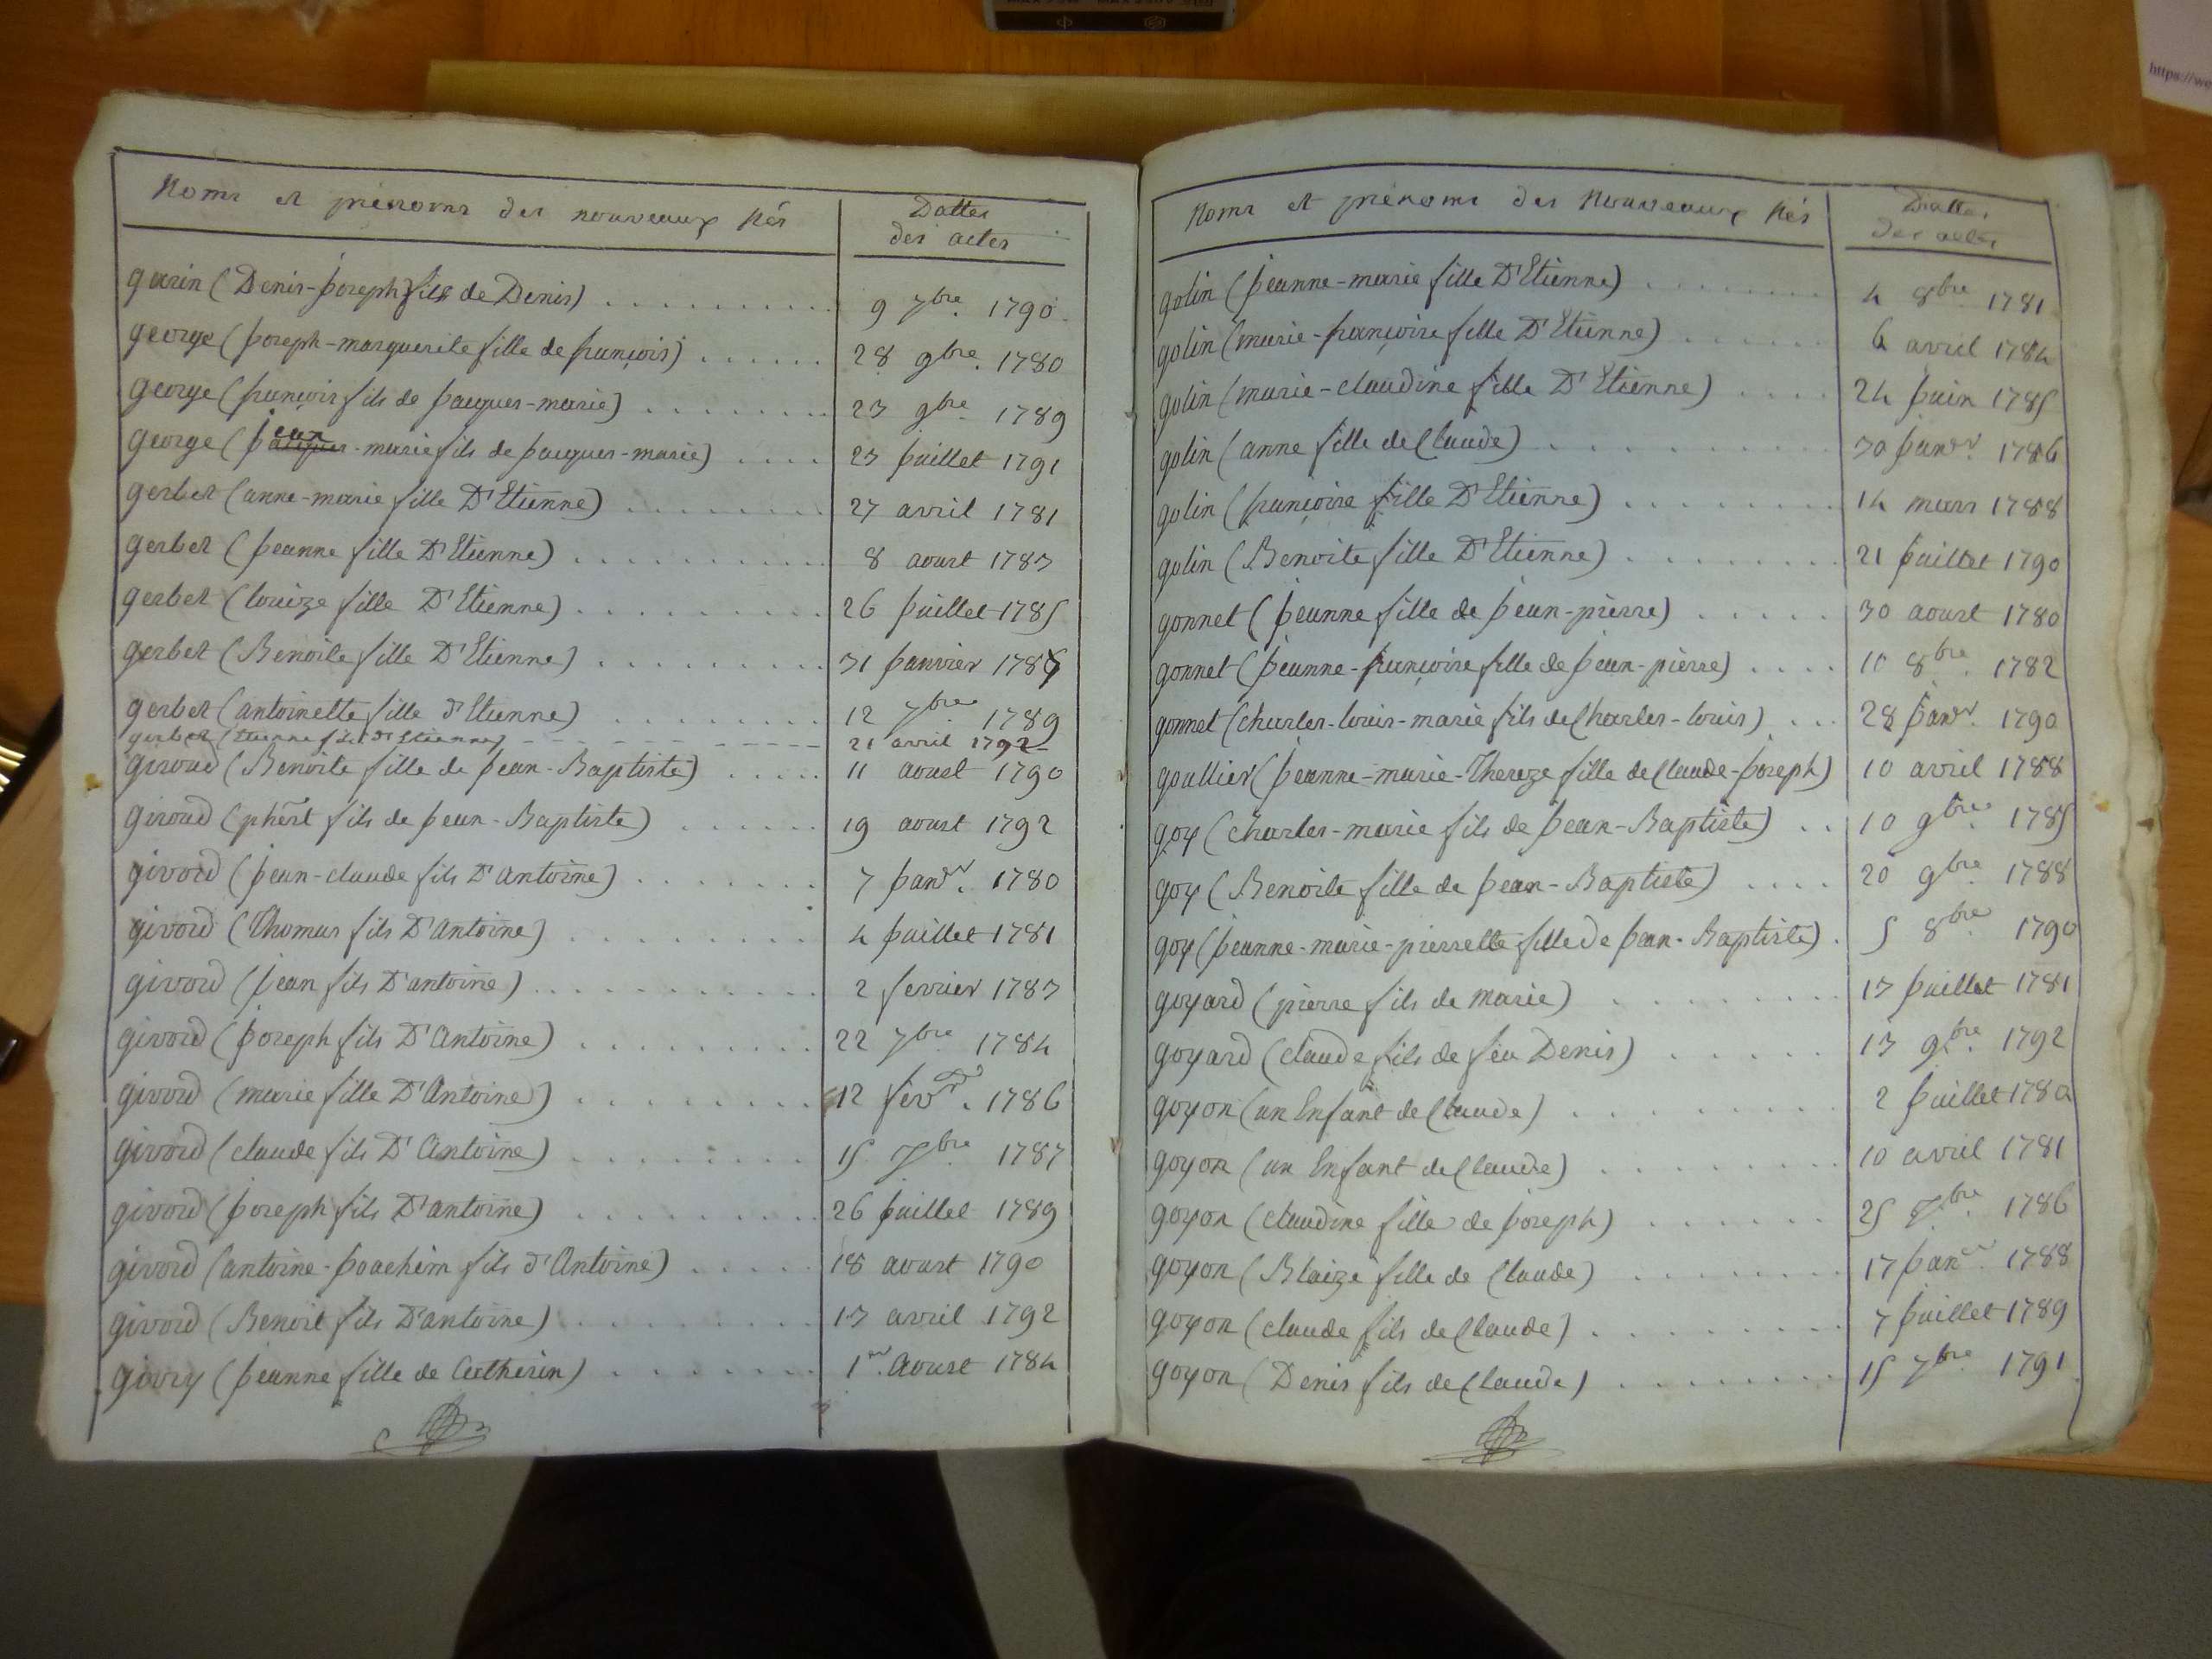 Noms et prénoms des nouveaux Nés
Dattes
des actes
garin (Denis-Joseph fils de Denis) 9 7bre. 1790
george (Joseph-marguerite fille de françois) 28 9bre. 1780
george (françois fils de Jacques-marie) 23 9bre 1789
george (Jean-marie fils de Jacques-marie) 23 Juillet 1791
gerbet (anne-marie fille D'Etienne) 27 avril 1781
gerbet (Jeanne fille D'Etienne) 8 aoust 1783
gerbet (louize fille D'Etienne) 26 Juillet 1785
gerbet (Benoite fille D'Etienne) 31 Janvier 1787
gerbet (antoinette fille d'Etienne) 12 7bre 1789
gerbet (Etienne fils d'Etienne) 21 avril 1792
giroud (Benoite fille de Jean-Baptiste) 11 aoust 1790
giroud (phert fils de Jean-Baptiste) 19 aoust 1792
givord (Jean-claude fils D'antoine) 7 Janvr. 1780
givord (Thomas fils D'antoine) 4 Juillet 1781
givord (Jean fils D'antoine) 2 fevrier 1783
givord (Joseph fils D'Antoine) 22 7bre 1784
givord (marie fille D'Antoine) 12 fevr. 1786
givord (claude fils D'Antoine) 15 7bre 1787
givord (Joseph fils D'antoine) 26 Juillet 1789
givord (antoine-Joachim fils d'Antoine) 18 aoust 1790
givord (Benoit fils D'antoine) 13 avril 1792
givry (Jeanne fille de Catherin) 1er. Aoust 1784
Noms et prénoms des Nouveaux Nés
Dattes
des actes
golin (Jeanne-marie fille D'Etienne) 4 8bre 1781
golin (marie-françoise fille D'Etienne) 6 avril 1784
golin (marie-claudine fille D'Etienne) 24 Juin 1785
golin (anne fille de Claude) 30 Janvr. 1786
golin (françoise fille D'Etienne) 14 mars 1788
golin (Benoite fille D'Etienne) 21 Juillet 1790
gonnet (Jeanne fille de Jean-pierre) 30 aoust 1780
gonnet (Jeanne-françoise fille de Jean-pierre) 10 8bre. 1782
gonnet (charles-louis-marie fils de Charles-louis) 28 Janvr. 1790
goullier (Jeanne-marie-Thereze fille de Claude-Joseph) 10 avril 1788
goy (charles-marie fils de Jean-Baptiste) 10 9bre. 1785
goy (Benoite fille de Jean-Baptiste) 20 9bre 1788
goy (Jeanne-marie-pierrette fille de Jean-Baptiste) 5 8bre 1790
goyard (pierre fils de marie) 13 Juillet 1781
goyard (claude fils de feu Denis) 13 9bre. 1792
goyon (un Enfant de Claude) 2 Juillet 1780
goyon (un Enfant de Claude) 10 avril 1781
goyon (claudine fille de Joseph) 25 7bre. 1786
goyon (Blaize fille de Claude) 17 Janvr. 1788
goyon (claude fils de Claude) 7 Juillet 1789
goyon (Denis fils de Claude) 15 7bre 1791
https://we